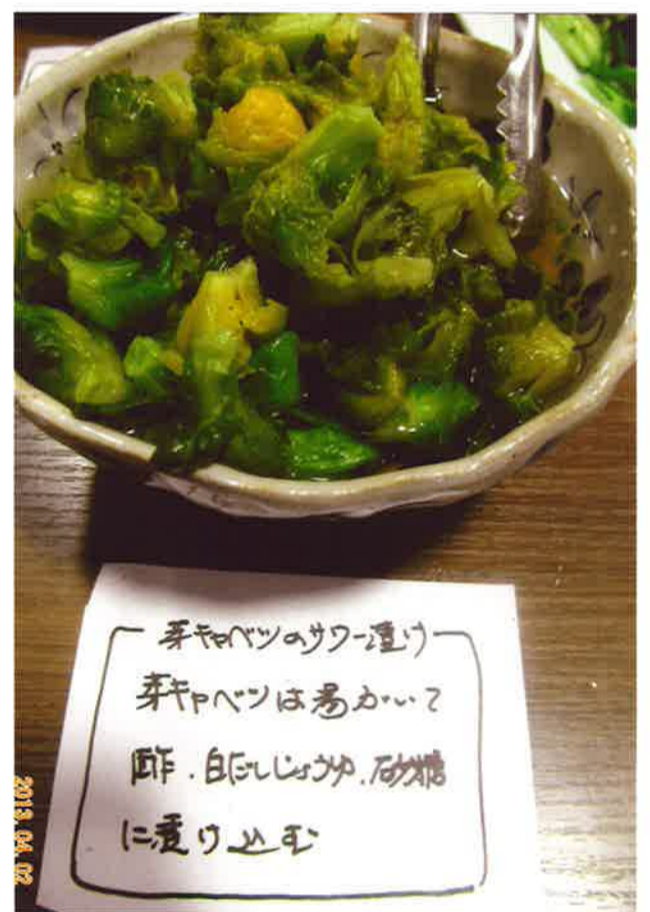 芽キャベツのサワー漬け
芽キャベツは湯がいて
酢.白だししょうゆ.砂糖
に漬け込む
2013.04.02